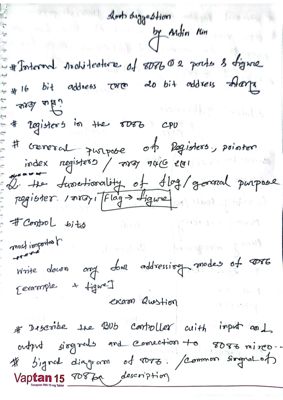 short suggestion
by Aldin Min
# Internal Architecture of 8086 @ 2 parts & figure
# 16 bit address থেকে 20 bit address কীভাবে
পাওয়া যায়?
# Registers in the 8086 CPU
# General purpose of Registers, pointer
index registers / পড়তে হবে
Q. the functionality of flag/general purpose
register / Flag → figure
# Control bits
most important
write down any five addressing modes of 8086
[example + figure]
exam Question
# Describe the BUS Controller with input and
output signals and connection to 8086 micro--
# Signal diagram of 8086 / common signal of
8086 description
Vaptan 15